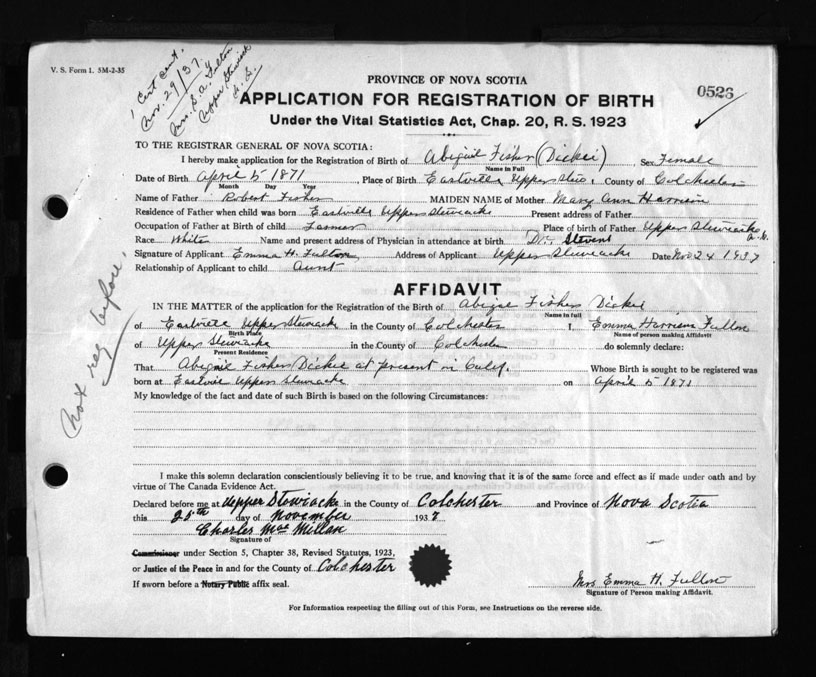 V. S. Form 1. 5M-2-35
1 Cert sent.
Nov. 29/37.
Mrs. S. A. Fulton
Upper Stewiack
N. S.
0526
PROVINCE OF NOVA SCOTIA
APPLICATION FOR REGISTRATION OF BIRTH
Under the Vital Statistics Act, Chap. 20, R. S. 1923
TO THE REGISTRAR GENERAL OF NOVA SCOTIA:
I hereby make application for the Registration of Birth of Abigail Fisher (Dickie), Sex Female
Name in Full
Date of Birth April 5 1871, Place of Birth Eastville Upper Stew, County of Colchester
Month Day Year
Name of Father Robert Fisher MAIDEN NAME of Mother Mary Ann Harrison
Residence of Father when child was born Eastville Upper Stewiacke Present address of Father
Occupation of Father at Birth of child Farmer Place of birth of Father Upper Stewiacke N.S.
Race White Name and present address of Physician in attendance at birth Dr. Stevens
Signature of Applicant Emma H. Fulton Address of Applicant Upper Stewiacke Date Nov 24 1937
Relationship of Applicant to child Aunt
AFFIDAVIT
IN THE MATTER of the application for the Registration of the Birth of Abigal Fisher Dickie
Name in full
of Eastville Upper Stewiacke in the County of Colchester I, Emma Harrison Fulton
Birth Place Name of person making Affidavit
of Upper Stewiacke in the County of Colchester do solemnly declare:
Present Residence
That Abigail Fisher Dickie at present in Calif. Whose Birth is sought to be registered was
born at Eastville Upper Stewiacke on April 5 1871
My knowledge of the fact and date of such Birth is based on the following Circumstances:
Not reg before.
I make this solemn declaration conscientiously believing it to be true, and knowing that it is of the same force and effect as if made under oath and by
virtue of The Canada Evidence Act.
Declared before me at Upper Stewiacke in the County of Colchester and Province of Nova Scotia
this 25th day of November 1937
Charles MacMillan
Signature of
Commissioner under Section 5, Chapter 38, Revised Statutes, 1923,
or Justice of the Peace in and for the County of Colchester
If sworn before a Notary Public affix seal.
Mrs Emma H. Fulton
Signature of Person making Affidavit.
For Information respecting the filling out of this Form, see Instructions on the reverse side.